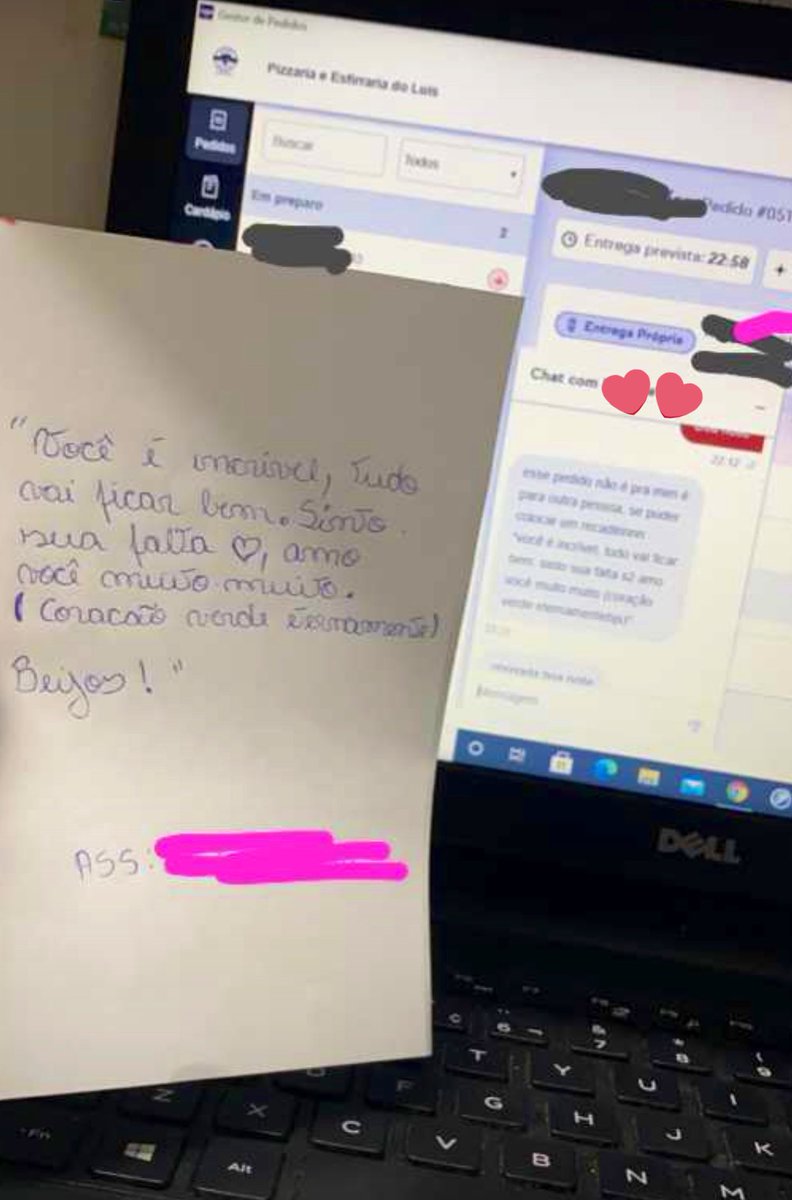 Gestor de Pedidos
Pizzaria e Esfirraria do Luis
Pedidos
Buscar
Todos
Cardápio
Em preparo
2
Pedido #051
Entrega prevista: 22:58
Entrega Própria
Chat com
22:12
esse pedido não é pra mim é
para outra pessoa, se puder
colocar um recadinho
"você é incrível, tudo vai ficar
bem, sinto sua falta s2 amo
você muito muito (coração
verde eternamente)
Mensagem
"Você é incrível, Tudo
vai ficar bem. Sinto
sua falta ♡, amo
você muito muito.
( Coracão verde éternamente)
Beijos! "
ASS:
DELL
6
7
8
9
T
Y
U
I
F
G
H
J
K
Z
X
C
V
B
N
M
Fn
Alt